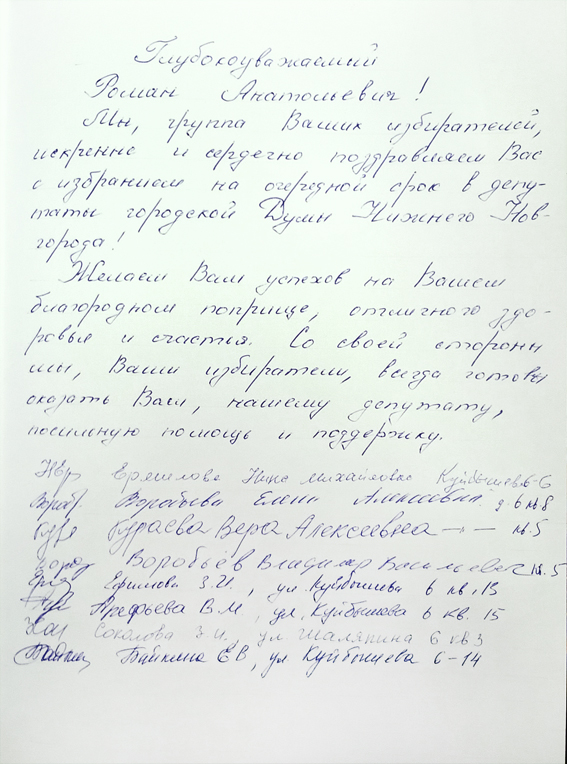 Глубокоуважаемый
Роман Анатольевич!
Мы, группа Ваших избирателей,
искренне и сердечно поздравляем Вас
с избранием на очередной срок в депу-
таты городской Думы Нижнего Нов-
города!
Желаем Вам успехов на Вашем
благородном поприще, отличного здо-
ровья и счастья. Со своей стороны
мы, Ваши избиратели, всегда готовы
оказать Вам, нашему депутату,
посильную помощь и поддержку.
Михайловна Куйбышева 6-6
Воробьева Елена Алексеевна д. 6 кв. 8
Кураева Вера Алексеевна —"— кв. 5
Воробьёв Владимир Васильевич кв. 5
Ефимова З.И., ул. Куйбышева 6 кв. 13
Арефьева В.М, ул. Куйбышева 6 кв. 15
Соколова З.И., ул Шаляпина 6 кв 3
Байкина ЕВ, ул Куйбышева 6-14